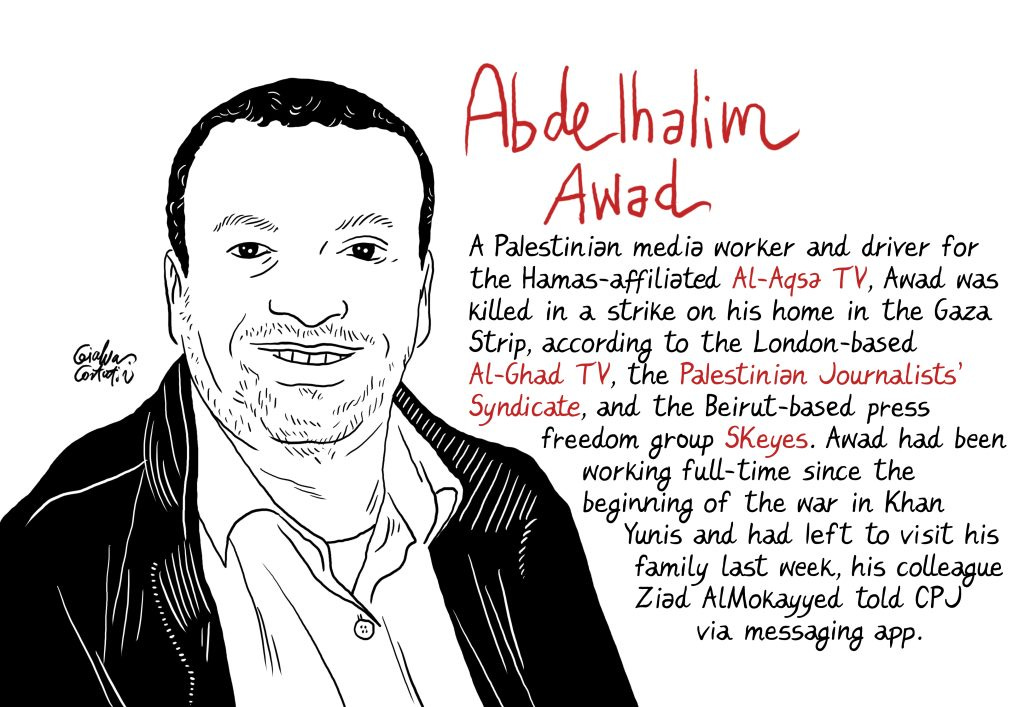 Abdelhalim
Awad
A Palestinian media worker and driver for
the Hamas-affiliated Al-Aqsa TV, Awad was
killed in a strike on his home in the Gaza
Strip, according to the London-based
Al-Ghad TV, the Palestinian Journalists'
Syndicate, and the Beirut-based press
freedom group SKeyes. Awad had been
working full-time since the
beginning of the war in Khan
Yunis and had left to visit his
family last week, his colleague
Ziad AlMokayyed told CPJ
via messaging app.